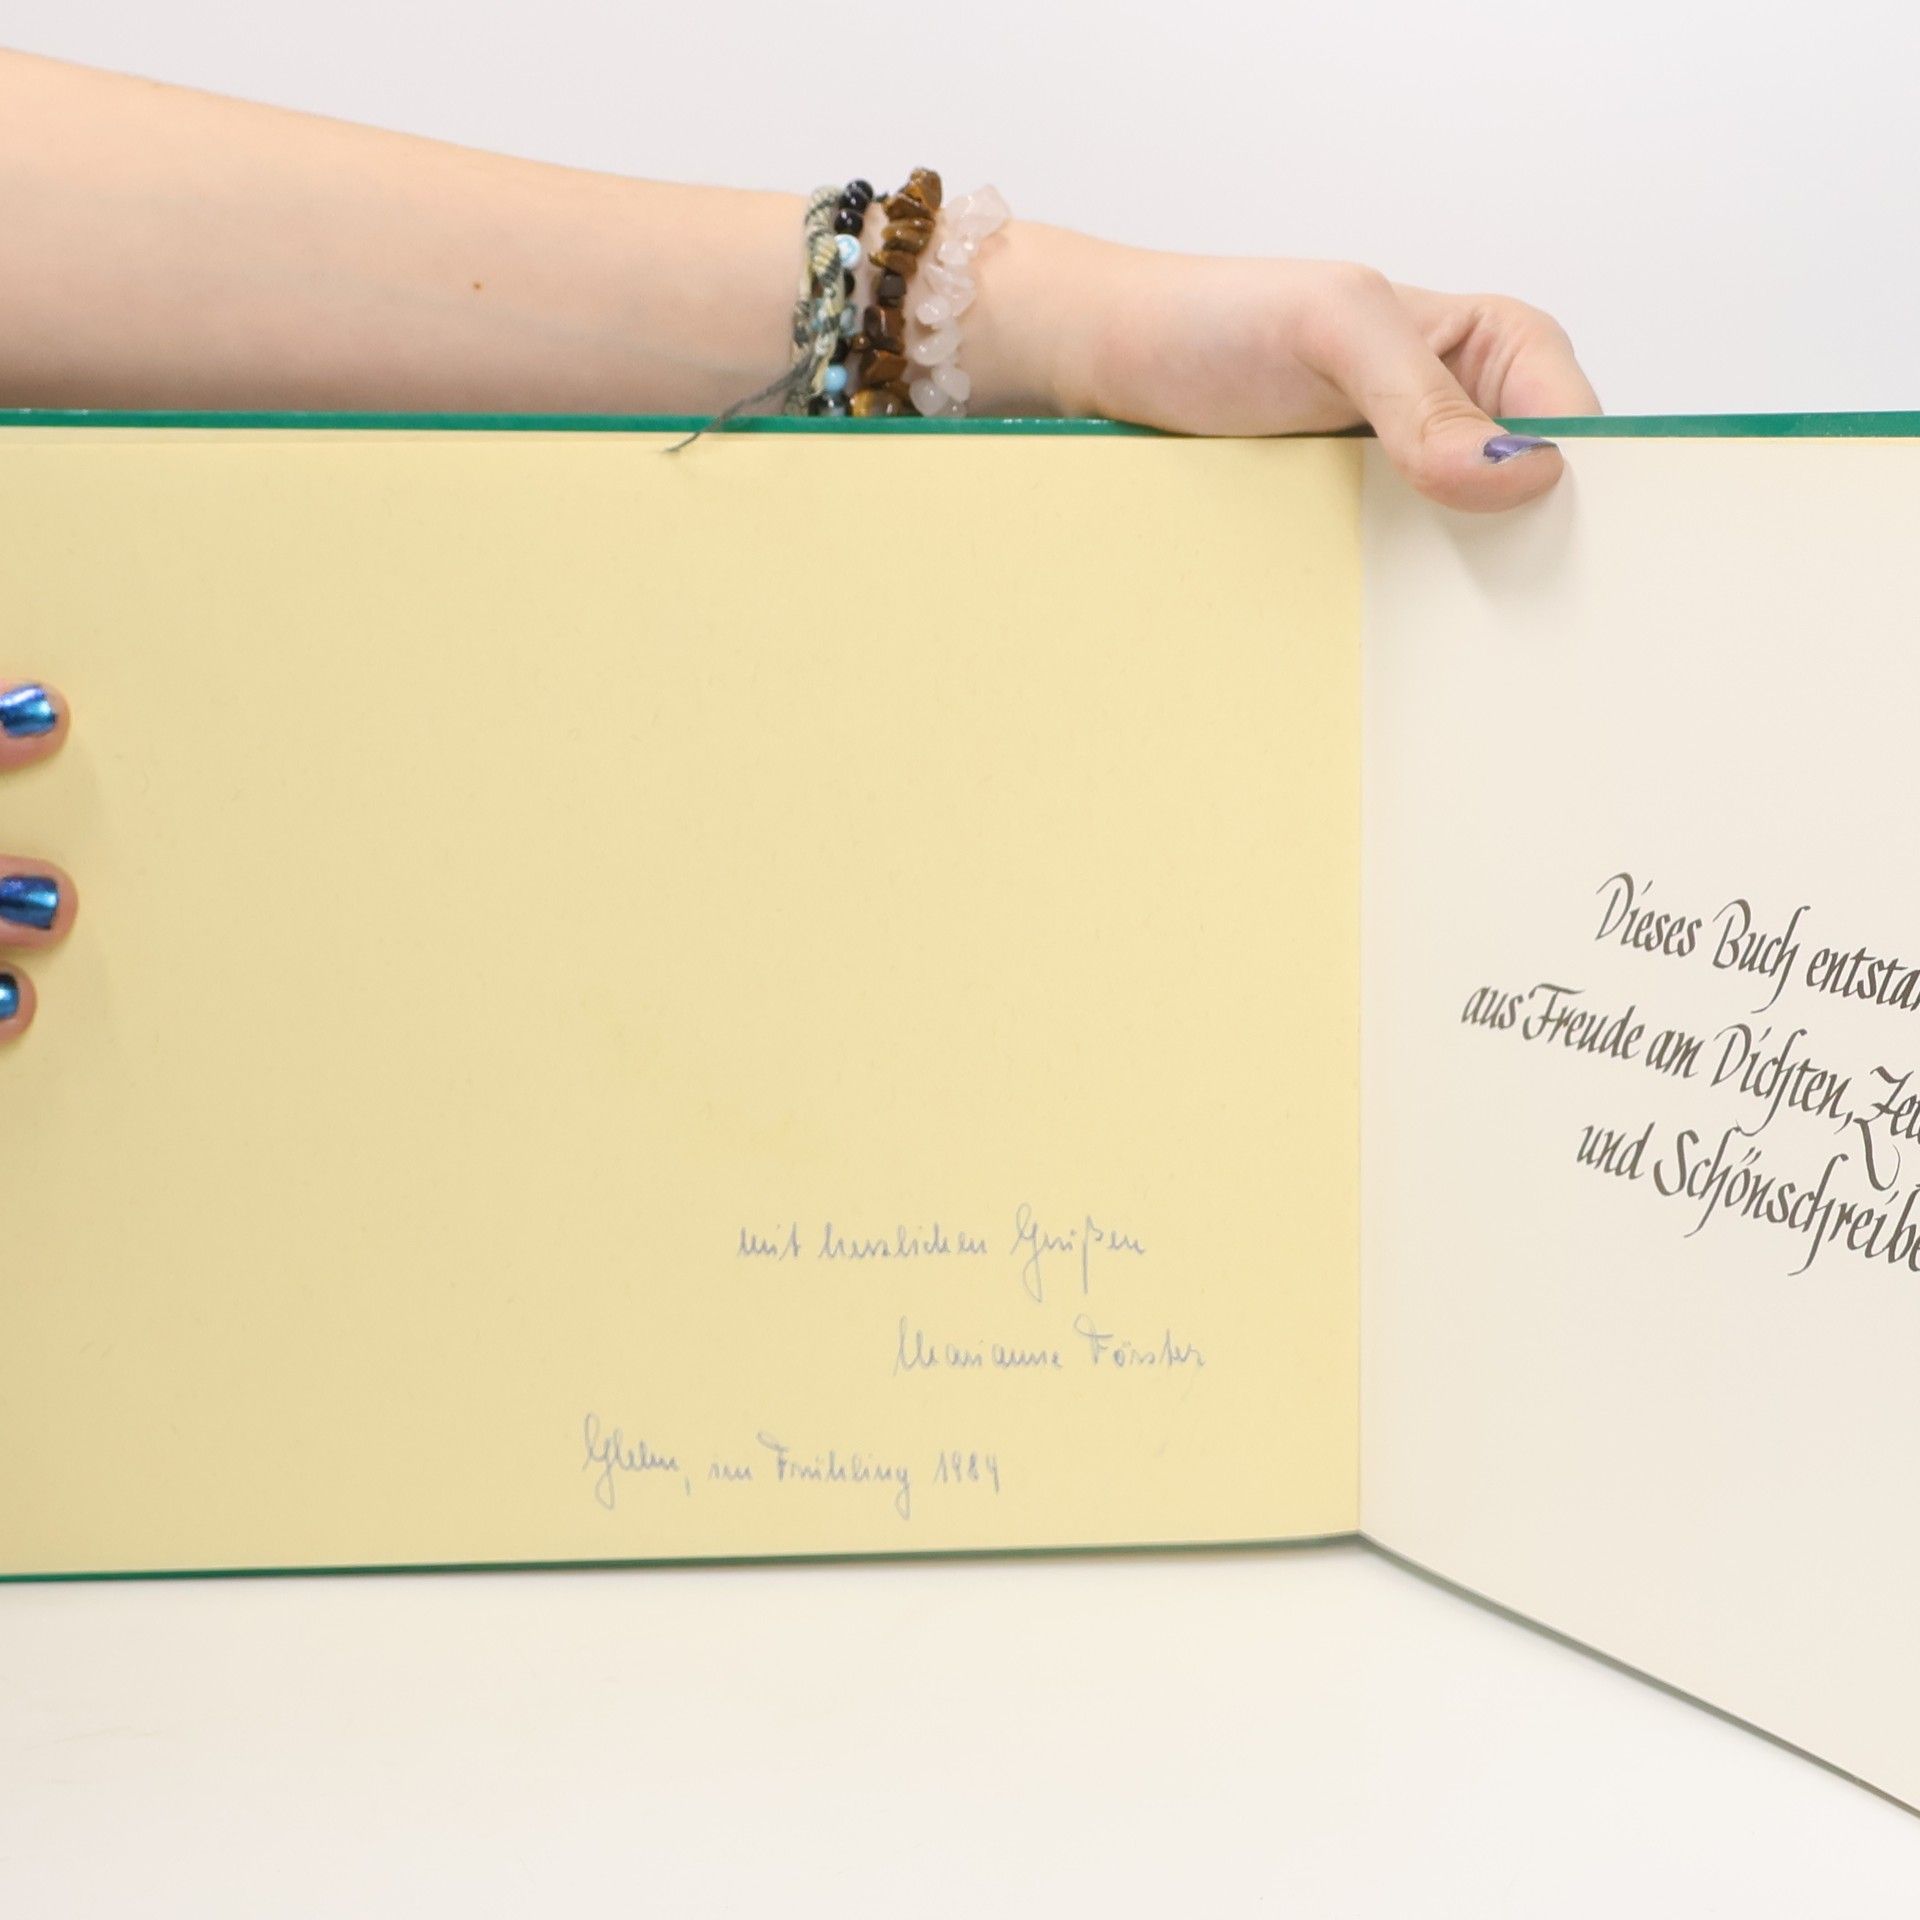 mit herzlichen Grüßen
Marianne Förster
Glehn, im Frühling 1984
Dieses Buch entstan
aus Freude am Dichten, Zei
und Schönschreibe